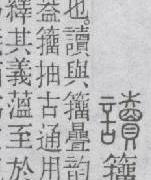 讀籒
也。讀與籒疊韵
蓋籒抽古通用
繹其義薀至於